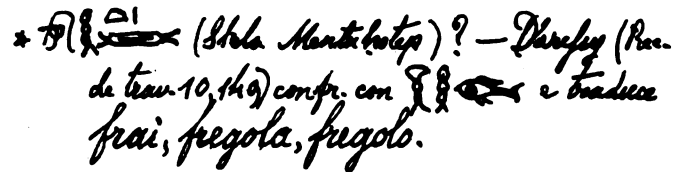 * (Stela Mentuhotep)? — Daressy (Rec.
de trav. 10,149) confr. con e traduce
frai, fregola, fregolo.